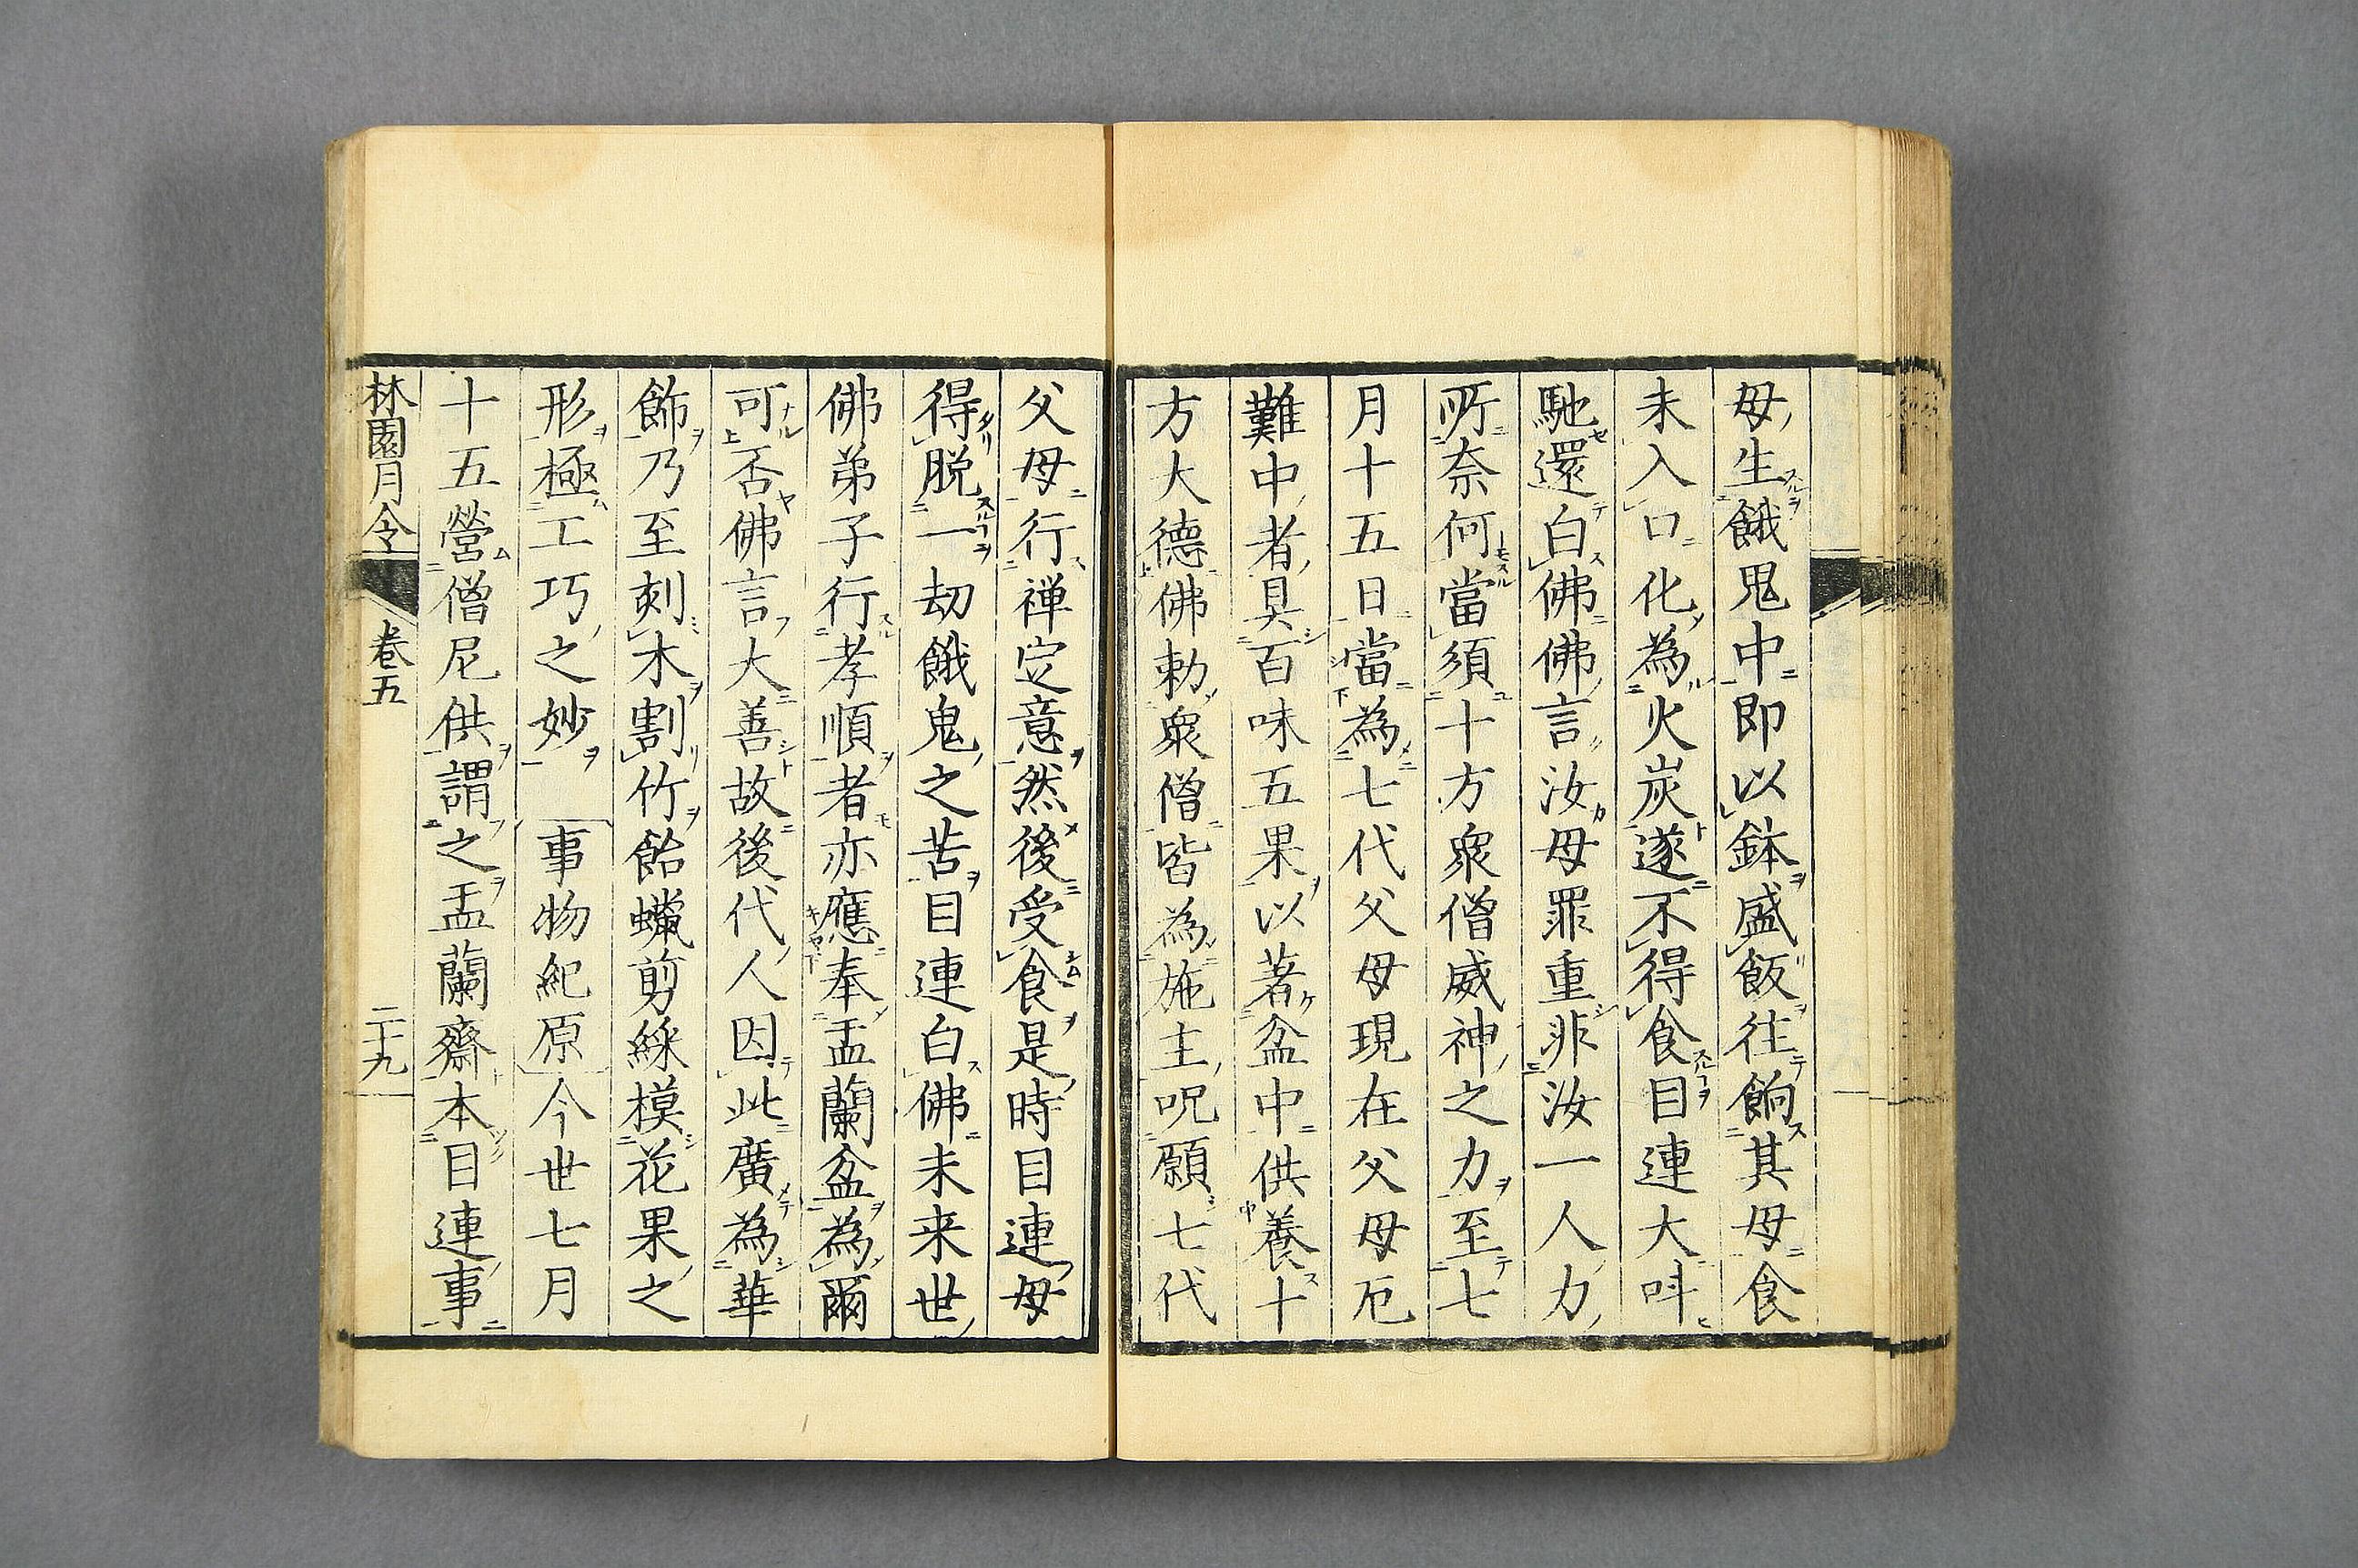 母生餓鬼中即以鉢盛飯往餉其母食
未入口化為火炭遂不得食目連大呌
馳還白佛佛言汝母罪重非汝一人力
所奈何當須十方衆僧威神之力至七
月十五日當為七代父母現在父母厄
難中者具百味五果以著盆中供養十
方大德佛勅衆僧皆為施主呪願七代
父母行禅定意然後受食是時目連母
得脱一劫餓鬼之苦目連白佛未来世
佛弟子行孝順者亦應奉盂蘭盆為爾
可否佛言大善故後代人因此廣為華
飾乃至刻木割竹飴蠟剪綵模花果之
形極工巧之妙 事物紀原 今世七月
十五營僧尼供謂之盂蘭齋本目連事
林園月令 巻五 二十九